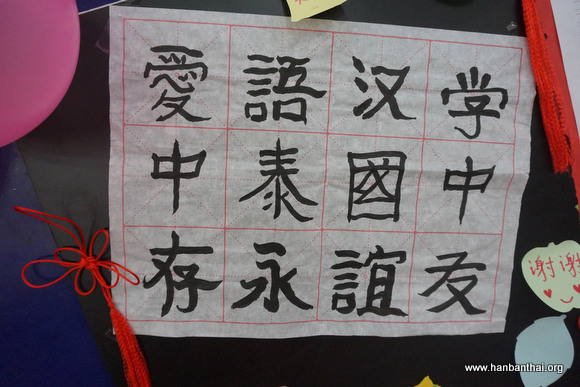 学汉語愛
中國泰中
友誼永存
谢谢
www.hanbanthai.org